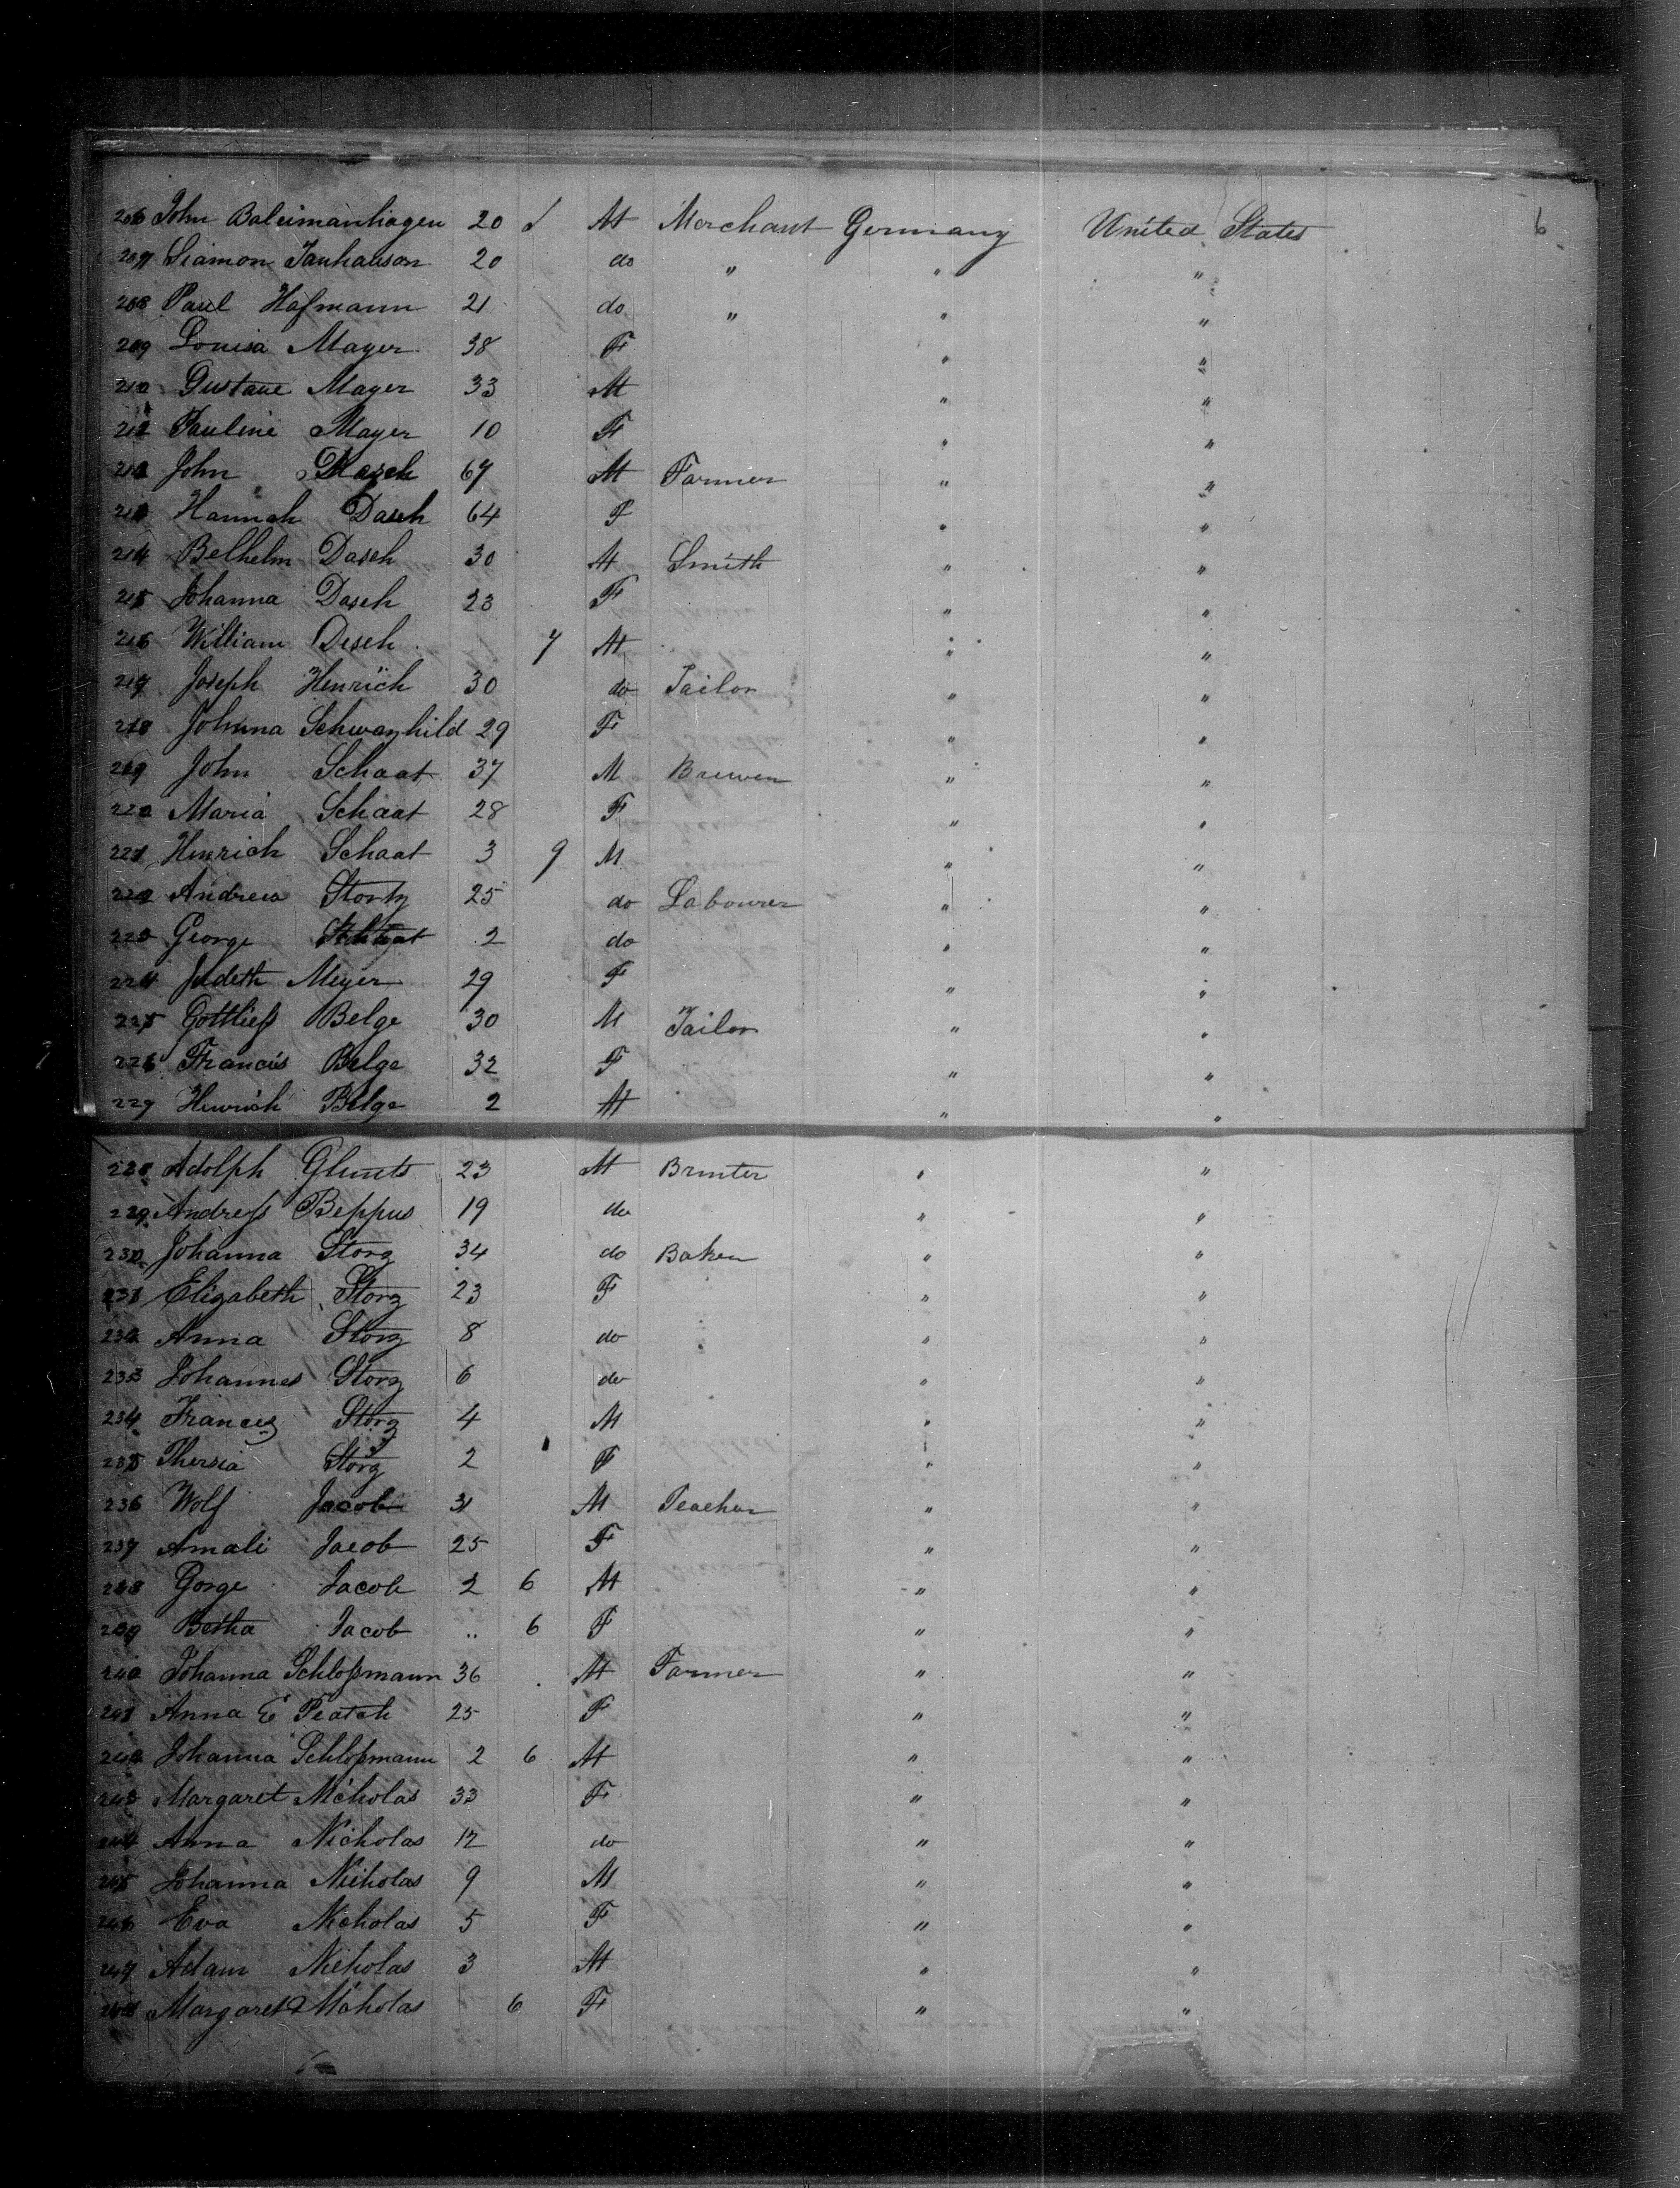 206 John Baleimanhagen 20 M Merchant Germany United States 6
207 Siamon Tanhauson 20 do " " "
208 Paul Hofmann 21 do " " "
209 Louisa Mayer 38 F " "
210 Gustave Mayer 33 M " "
211 Pauline Mayer 10 F " "
212 John Dasch 67 M Farmer " "
213 Hannah Dasch 64 F " "
214 Belhelm Dasch 30 M Smith " "
215 Johanna Dasch 23 F " "
216 William Desch 7 M " "
217 Joseph Henrich 30 do Tailor " "
218 Johnna Schwanhild 29 F " "
219 John Schaat 37 M Brewer " "
220 Maria Schaat 28 F " "
221 Henrich Schaat 3 9 M " "
222 Andrew Stortz 25 do Labourer " "
223 George 2 do " "
224 Judeth Meyer 29 F " "
225 Gottließ Belge 30 M Tailor " "
226 Francis Belge 32 F " "
227 Henrich Belge 2 M " "
228 Adolph Glunts 23 M Brinter " "
229 Andreß Beppus 19 do " "
230 Johanna Storz 34 do Baker " "
231 Elizabeth Storz 23 F " "
232 Anna Storz 8 do " "
233 Johannes Storz 6 do " "
234 Francez Storz 4 M " "
235 Thersia Storz 2 F " "
236 Wolf Jacob 31 M Teacher " "
237 Amali Jacob 25 F " "
238 Gorge Jacob 2 6 M " "
239 Betha Jacob .. 6 F " "
240 Johanna Schloßmann 36 M Farmer " "
241 Anna E Peatch 25 F " "
242 Johanna Schloßmann 2 6 M " "
243 Margaret Nicholas 33 F " "
244 Anna Nicholas 12 do " "
245 Johanna Nicholas 9 M " "
246 Eva Nicholas 5 F " "
247 Adam Nicholas 3 M " "
248 Margaret Nicholas 6 F " "